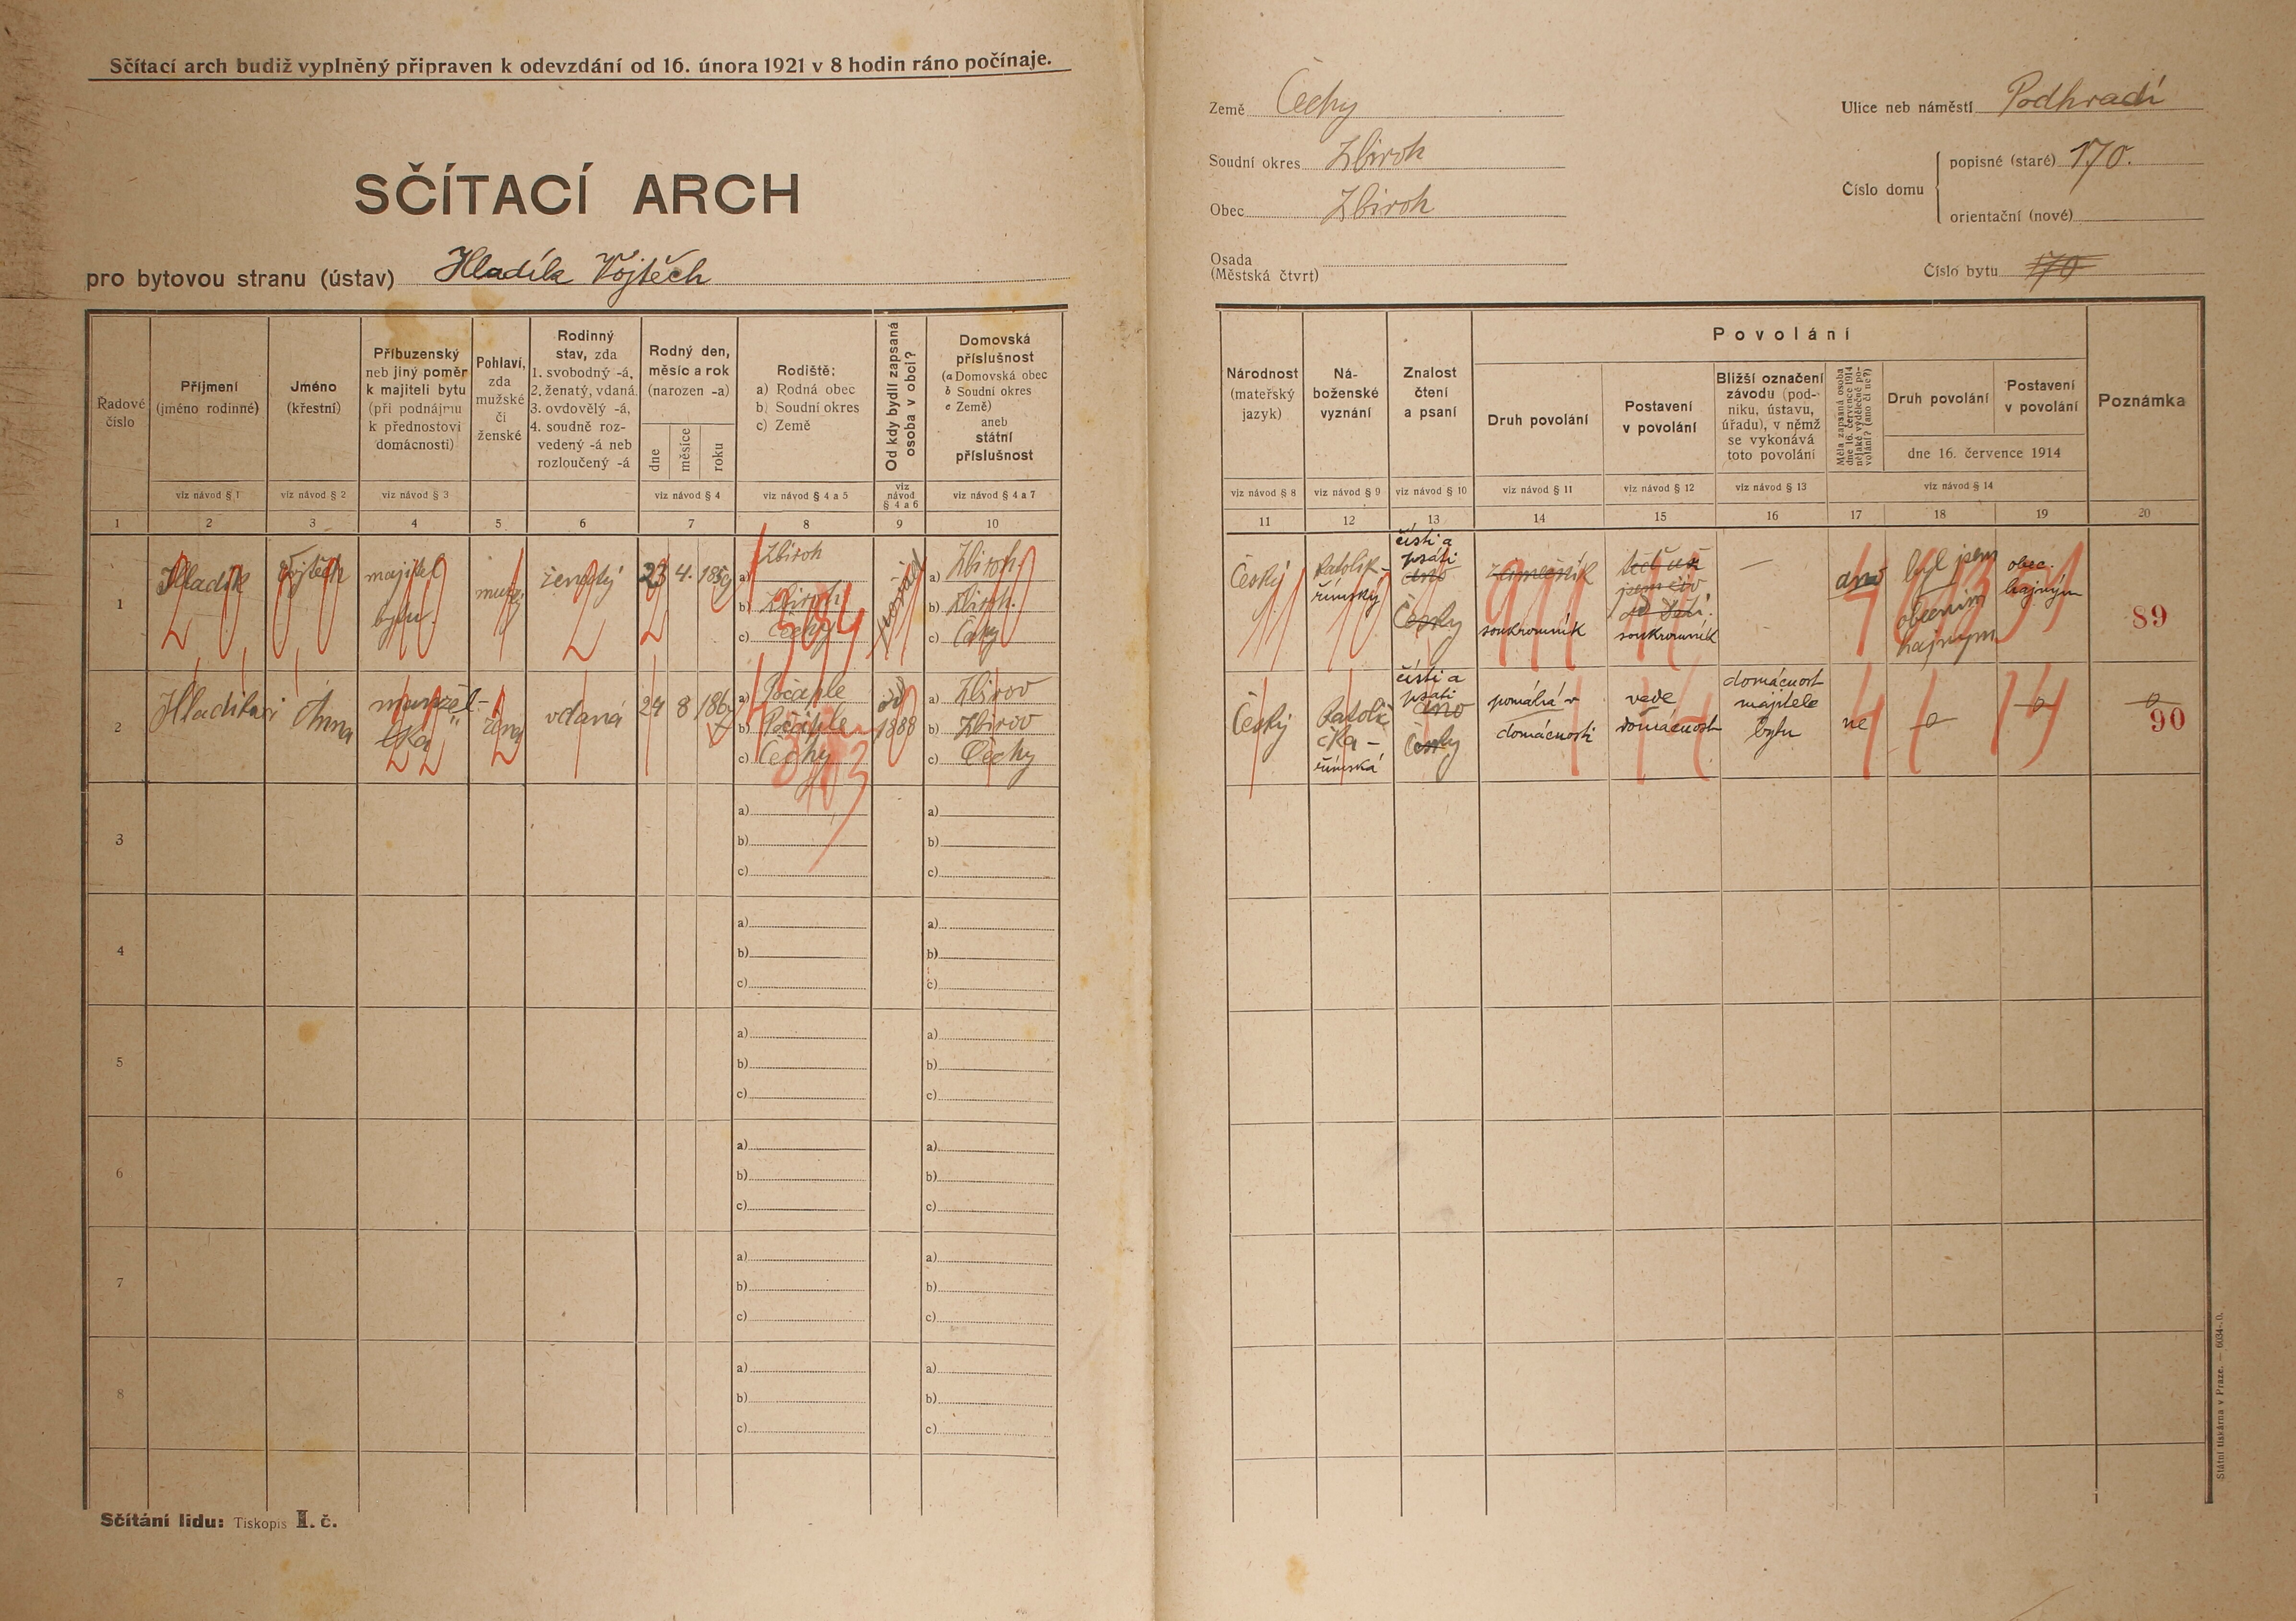 Sčítací arch budiž vyplněný připraven k odevzdání od 16. února 1921 v 8 hodin ráno počínaje.
SČÍTACÍ ARCH
pro bytovou stranu (ústav) Hladík Vojtěch
Země Čechy
Soudní okres Zbiroh
Obec Zbiroh
Osada
(Městská čtvrt)
Ulice neb náměstí Podhradí
Číslo domu
popisné (staré) 170.
orientační (nové)
Číslo bytu 170
Řadové
číslo
Příjmení
(jméno rodinné)
viz návod § 1
Jméno
(křestní)
viz návod § 2
Příbuzenský
neb jiný poměr
k majiteli bytu
(při podnájmu
k přednostovi
domácnosti)
viz návod § 3
Pohlaví,
zda
mužské
či
ženské
Rodinný
stav, zda
1. svobodný -á,
2. ženatý, vdaná
3. ovdovělý -á,
4. soudně roz-
vedený -á neb
rozloučený -á
Rodný den,
měsíc a rok
(narozen -a)
dne
měsíce
roku
viz návod § 4
Rodiště:
a) Rodná obec
b) Soudní okres
c) Země
viz návod § 4 a 5
Od kdy bydlí zapsaná
osoba v obci?
viz
návod
§ 4 a 6
Domovská
příslušnost
(a Domovská obec
b Soudní okres
c Země)
aneb
státní
příslušnost
viz návod § 4 a 7
Národnost
(mateřský
jazyk)
viz návod § 8
Ná-
boženské
vyznání
viz návod § 9
Znalost
čtení
a psaní
viz návod § 10
Povolání
Druh povolání
viz návod § 11
Postavení
v povolání
viz návod § 12
Bližší označení
závodu (pod-
niku, ústavu,
úřadu), v němž
se vykonává
toto povolání
viz návod § 13
Měla zapsaná osoba
dne 16. července 1914
nějaké výdělečné po-
volání? (ano či ne?)
Druh povolání
Postavení
v povolání
dne 16. července 1914
viz návod § 14
Poznámka
1 2 3 4 5 6 7 8 9 10 11 12 13 14 15 16 17 18 19 20
1
Hladík
Vojtěch
majitel
bytu.
ženatý
23 4. 1859
a) Zbiroh
b) Zbiroh
c) Čechy
a) Zbiroh.
b) Zbiroh.
c) Čechy
Český
katolík-
římský
čísti a
psáti
ano
Česky
soukromník
soukromník
—
ano
byl jsem
obecním
hajným
obec.
hajným
89
2
Hladíková
Anna
manžel-
lka
žena
vdaná
24 8 1867
a) Počaple
b) Počaple
c) Čechy
od
1888
a) Zbirov
b) Zbirov
c) Čechy
Český
katolič
čka -
římská
čísti a
psáti
ano
česky
pomáhá v
domácnosti
vede
domácnost
domácnost
majitele
bytu
ne
90
3
a)
b)
c)
a)
b)
c)
4
a)
b)
c)
a)
b)
c)
5
a)
b)
c)
a)
b)
c)
6
a)
b)
c)
a)
b)
c)
7
a)
b)
c)
a)
b)
c)
8
a)
b)
c)
a)
b)
c)
Sčítání lidu: Tiskopis I. č.
Státní tiskárna v Praze. — 6034-20.